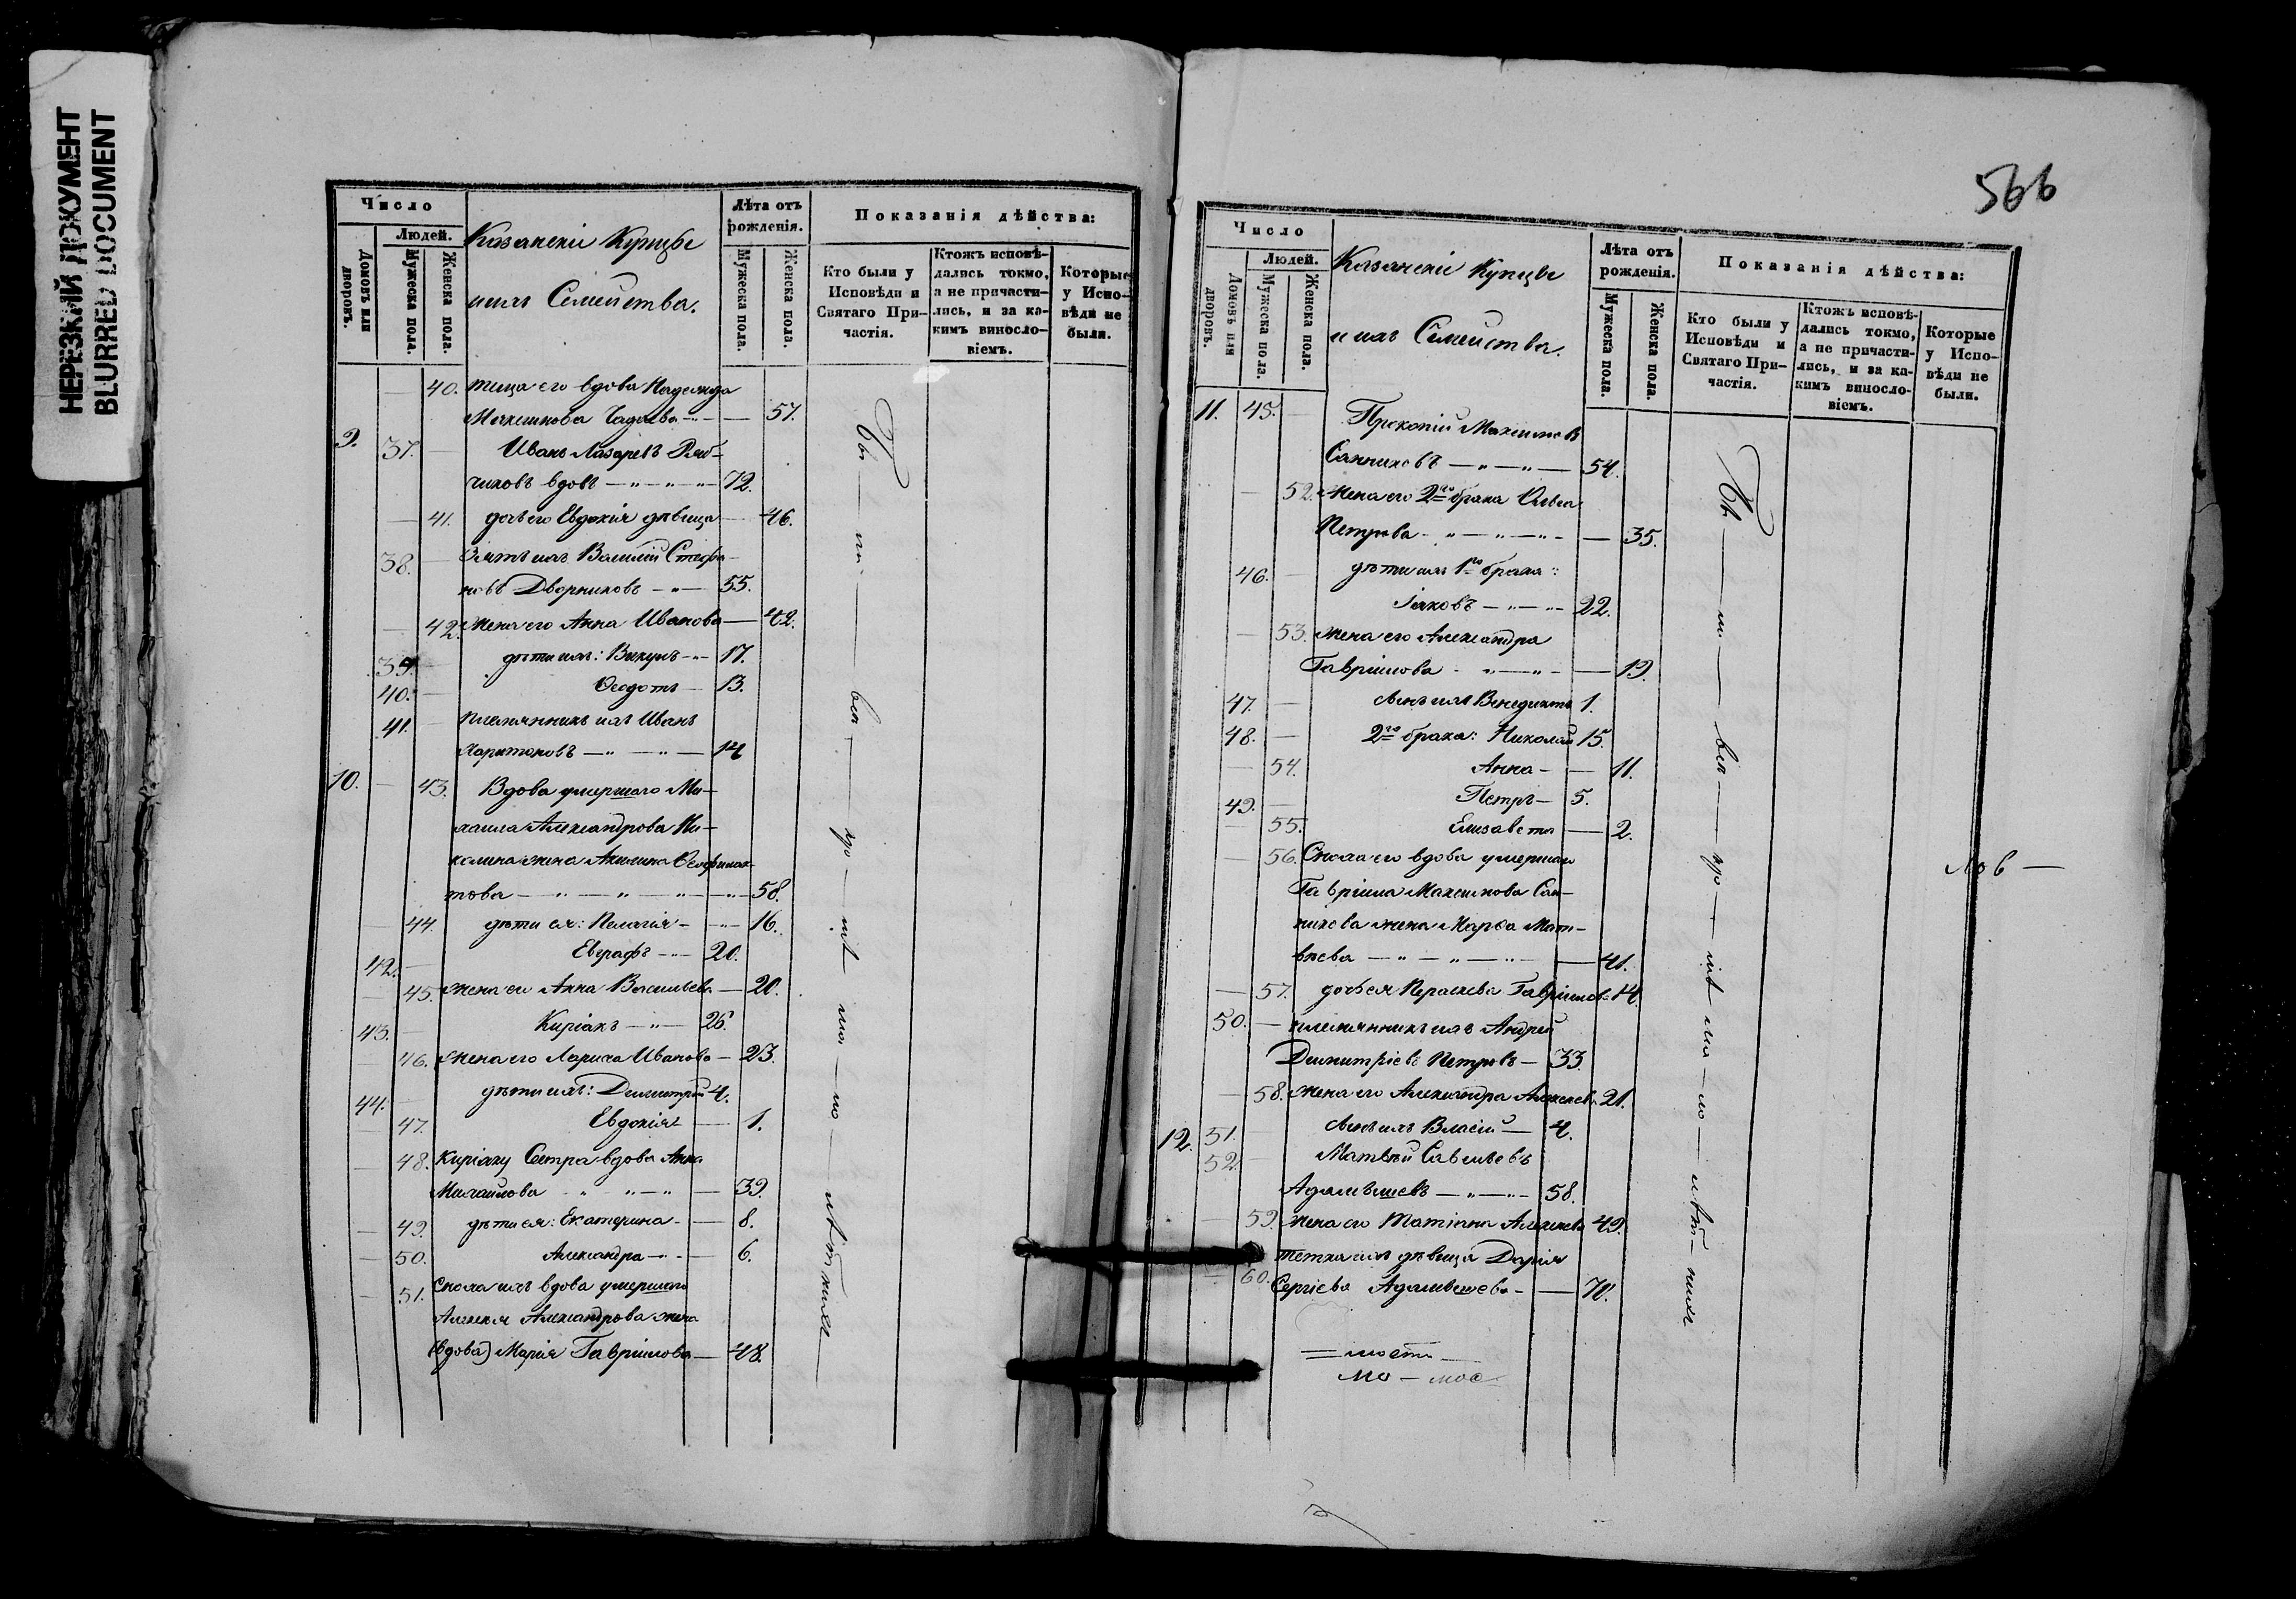 НЕРЕЗКИЙ ДОКУМЕНТ
BLURRED DOCUMENT
Число
Людей.
Домовъ или дворовъ.
Мужеска пола.
Женска пола.
Казанскіе Купцы
и ихъ Семейства.
Лѣта отъ рожденія.
Мужеска пола.
Женска пола.
Показанія дѣйства:
Кто были у Исповѣди и Святаго Причастія.
Ктожъ исповѣдались токмо, а не причастились, и за какимъ винословіемъ.
Которые у Исповѣди не были.
40. теща его вдова Надежда
57.
9. 37. Иванъ Лазаревъ
чиковъ вдовъ 72.
41. дочь его Евдокія дѣвица 46.
38. Зять ихъ Василій Стефа-
новъ Дворниковъ 55.
42. жена его Анна Иванова 42.
39. дѣти ихъ: Викулъ 17.
40. Ѳеодотъ 13.
41. племянникъ ихъ Иванъ
Харитоновъ 14
10. 43. Вдова умершаго Ми-
хаила Александрова Ни-
колина жена Акилина Ѳеофилак-
това 58.
44. дѣти ея: Пелагія 16.
42. Евграфъ 20.
45. жена его Анна Васильева 20.
43. Киріакъ 26.
46. жена его Лариса Иванова 23.
44. дѣти ихъ: Димитрій 4.
47. Евдокія 1.
48. Киріаку Сестра вдова Анна
Михайлова 39.
49. дѣти ея: Екатерина 8.
50. Александра 6.
51. Сноха ихъ вдова умершаго
Алексея Александрова жена
(вдова) Марія Гавріилова 48.
566
Число
Людей.
Домовъ или дворовъ.
Мужеска пола.
Женска пола.
Казанскіе Купцы
и ихъ Семейства.
Лѣта отъ рожденія.
Мужеска пола.
Женска пола.
Показанія дѣйства:
Кто были у Исповѣди и Святаго Причастія.
Ктожъ исповѣдались токмо, а не причастились, и за какимъ винословіемъ.
Которые у Исповѣди не были.
11. 45. Прокопій Максимовъ
Санниковъ 54.
52. жена его 2го брака Ольга
Петрова 35.
46. дѣти ихъ 1го брака:
Іаковъ 22.
53. жена его Александра
Гавріилова 19.
47. сынъ ихъ Венедиктъ 1.
48. 2го брака: Николай 15.
54. Анна 11.
49. Петръ 5.
55. Елизавета 2.
56. Сноха его вдова умершаго
Гавріила Максимова Сан-
никова жена Марѳа Мат-
вѣева 41.
57. дочь ея Параскева Гавріилова 14.
50. племянникъ ихъ Андрей
Димитріевъ Петровъ 33.
58. жена его Александра Алексеева 21.
51. сынъ ихъ Власій 4.
12. 52. Матвѣй Савельевъ
58.
59. жена его Татіана Алексеева 49.
тетка ихъ дѣвица Дарія
60. Сергіева 70.